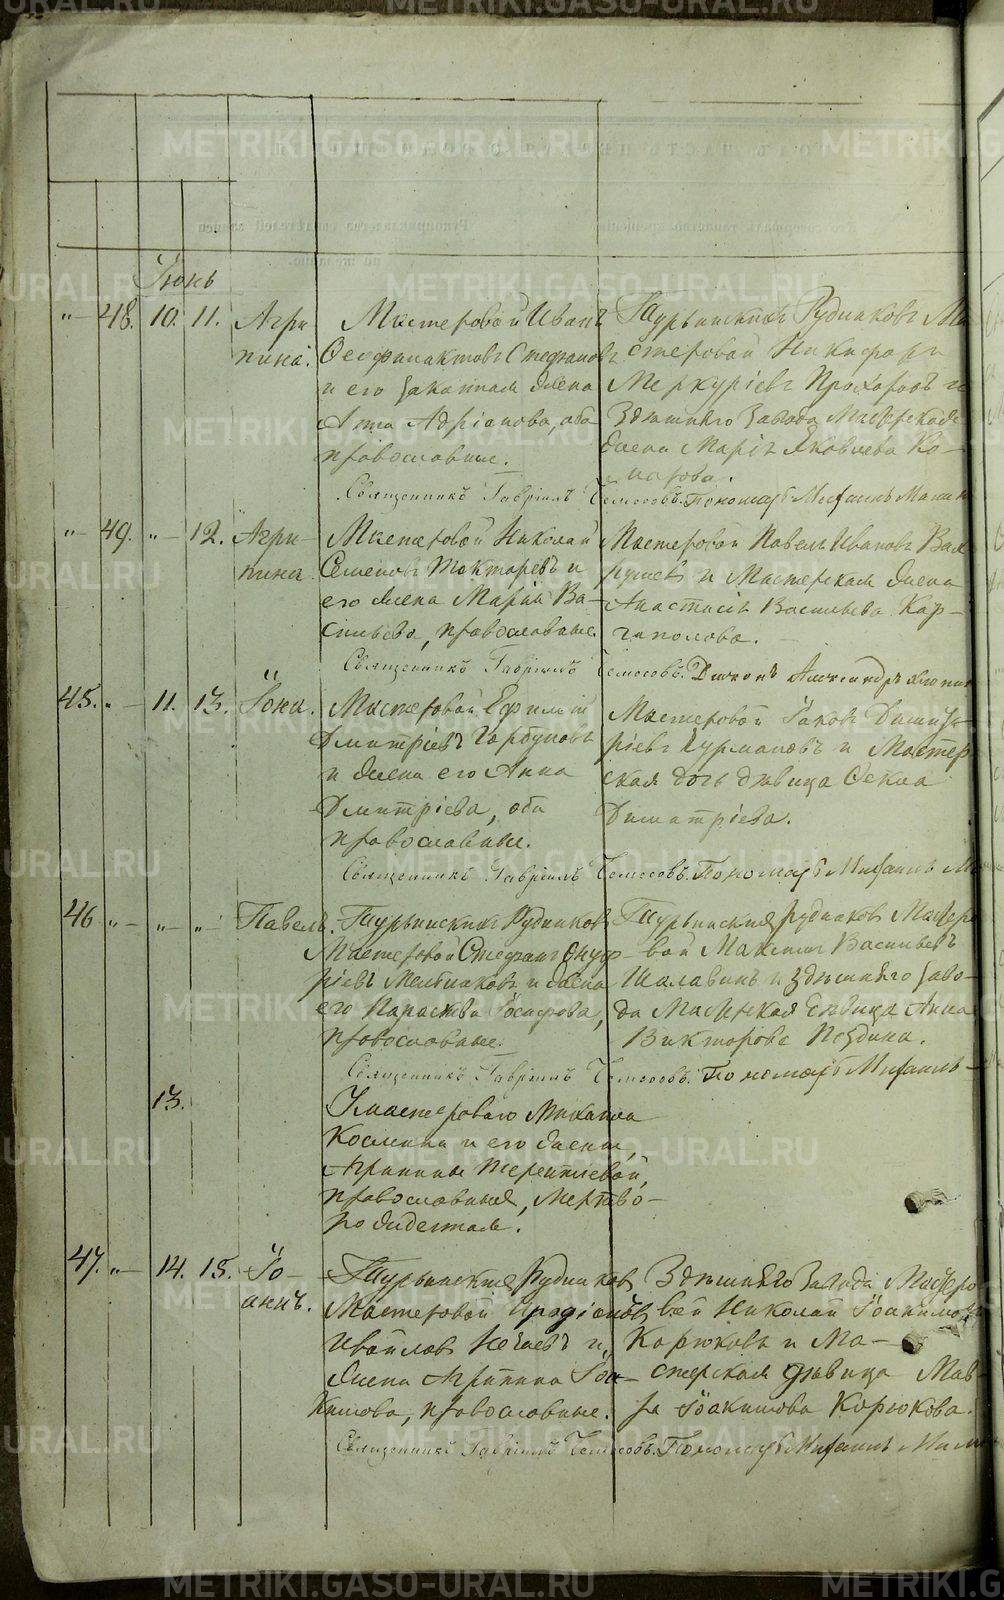 Іюнь
"— 48. 10. 11. Агри
пина.
Мастеровой Иванъ
Феофилактовъ Стефановъ
и его законная жена
Анна Адріанова, оба
православные.
Турьинскихъ Рудниковъ Ма
стеровой Никифоръ
Меркуріевъ Прохоровъ и
Здѣшняго Завода Мастерская
жена Марія Яковлева Ко-
марова.
Священникъ Гавріилъ Пономарь Михаилъ
"— 49. "— 12. Агри-
пина.
Мастеровой Николай
Семеновъ Токтаревъ и
его жена Марія Ва-
сильева, православные.
Мастеровой Павелъ Ивановъ Вах
рушевъ и Мастерская жена
Анастасія Васильева Кар-
гаполова.
Священникъ Гавріилъ Діаконъ Александръ
45. "— 11. 13. Іона.
Мастеровой Ефимъ
Дмитріевъ Горбуновъ
и жена его Анна
Дмитріева, оба
православные.
Мастеровой Іаковъ Димит
ріевъ Курмановъ и Мастер
ская дочь дѣвица Фекла
Димитріева.
Священникъ Гавріилъ Пономарь Михаилъ
46 "— "— "— Павелъ.
Турьинскихъ Рудниковъ
Мастеровой Стефанъ Онуф
ріевъ и жена
его Параскева Іосифова,
православные.
Турьинскихъ рудниковъ Мастеро
вой Максимъ Васильевъ
Шалавинъ и здѣшняго заво-
да Мастерская дѣвица Анна
Викторова
Священникъ Гавріилъ Пономарь Михаилъ
13.
У мастероваго Михаила
Космина и его жены,
Агрипины Терентіевой,
православныя, Мертво-
рожденная.
47. "— 14. 15. Іо-
аннъ.
Турьинскихъ Рудниковъ
Мастеровой Иродіонъ
Ивановъ и
жена Агрипина Іоа-
кимова, православные.
Здѣшняго Завода Мастеро
вой Николай Іоакимовъ
Корюковъ и Ма-
стерская дѣвица Мав-
ра Іоакимова Корюкова.
Священникъ Гавріилъ Пономарь Михаилъ
METRIKI.GASO-URAL.RU